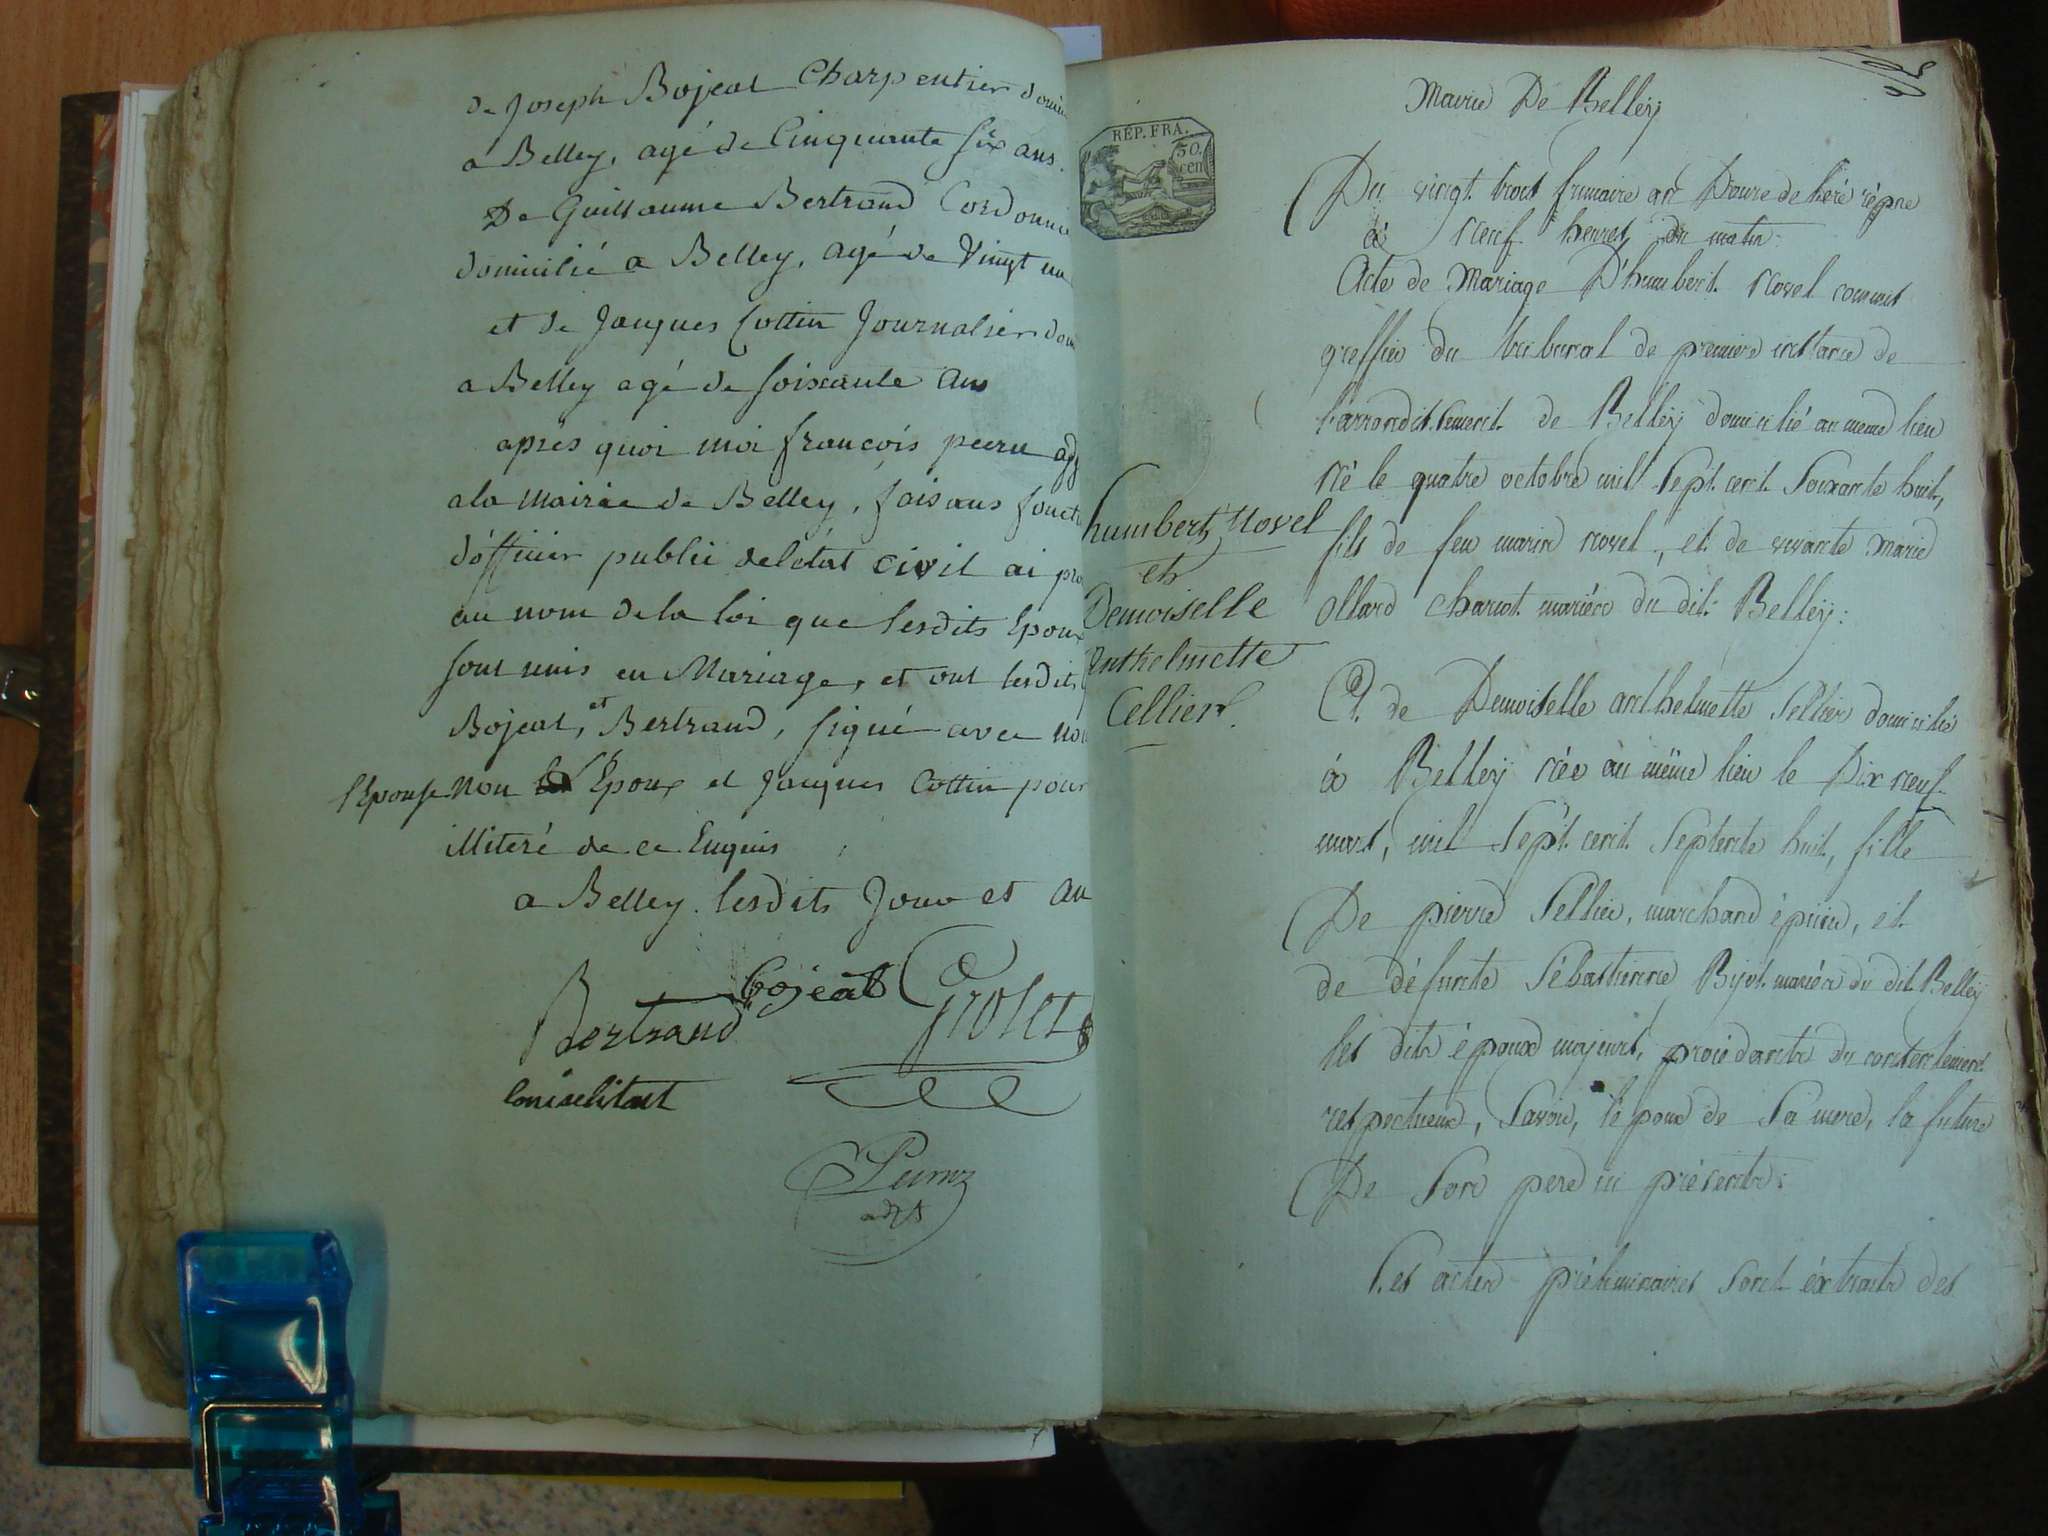 de Joseph Bojeat Charpentier domi
a Belley, agé de Cinquante six ans.
De Guillaume Bertrand Cordonni
domicilié a Belley, agé de Vingt un
et de Jacques Cottin Journalier dom
a Belley agé de soixante ans
après quoi moi françois peeru adj
a la Mairie de Belley, faisans fonct
d'officier public de létat civil ai pro
au nom de la loi que lesdits Epoux
sont unis en Mariage, et ont lesdits
Bojeat, et Bertrand, signé avec nou
l'Epouse non l'Epoux et Jacques Cottin pour
illiteré de ce Enquis
a Belley. lesdits Jour et an
Bojeat
Bertrand
Grolet
adjt
RÉP. FRA.
50. cen
humbert Novel
et
Demoiselle
Anthelmette
Cellier.
Mairie De Belley
Du vingt trois frimaire an Douze de l'ére répne
à Neuf heures du matin.
Acte de Mariage D'humbert Novel commis
greffier du tribunal de premiere instance de
l'arrondissement de Belley domicilié au meme lieu
Né le quatre octobre mil sept cent soixante huit,
fils de feu marin Novel, et de vivante marie
ollard chariot mariés du dit Belley:
Et de Demoiselle anthelmette Sellier domiciliée
à Belley née au même lieu le Dix neuf
mars, mil sept cent septente huit, fille
De pierre Sellier, marchand épicier, et
de défunte Sébastienne Bijot mariés du dit Belley
les dits époux majeurs, procédants du consentement
respectueux, savoir, l'époux de sa mere, la future
De son pere ici présents:
Les actes préliminaires sont éxtraits des